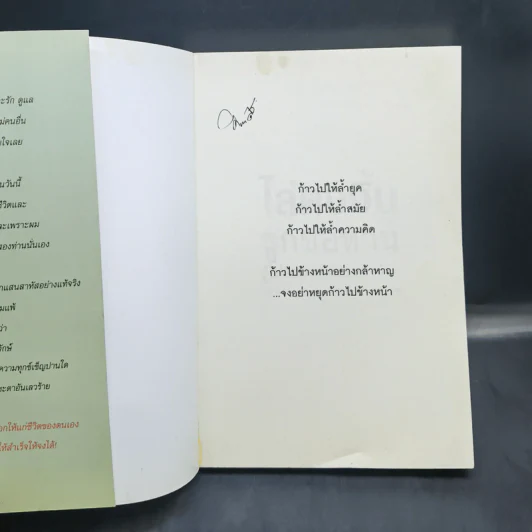 ะรัก ดูแล
ม่คนอื่น
ยใจเลย
นวันนี้
ชีวิตและ
ละเพราะผม
สองท่านนั่นเอง
าแสนสาหัสอย่างแท้จริง
มแพ้
ว่า
ักษ์
ความทุกข์เข็ญปานใด
ะตาอันเลวร้าย
อกให้แก่ชีวิตของตนเอง
ให้สำเร็จให้จงได้!
ก้าวไปให้ล้ำยุค
ก้าวไปให้ล้ำสมัย
ก้าวไปให้ล้ำความคิด
ก้าวไปข้างหน้าอย่างกล้าหาญ
...จงอย่าหยุดก้าวไปข้างหน้า